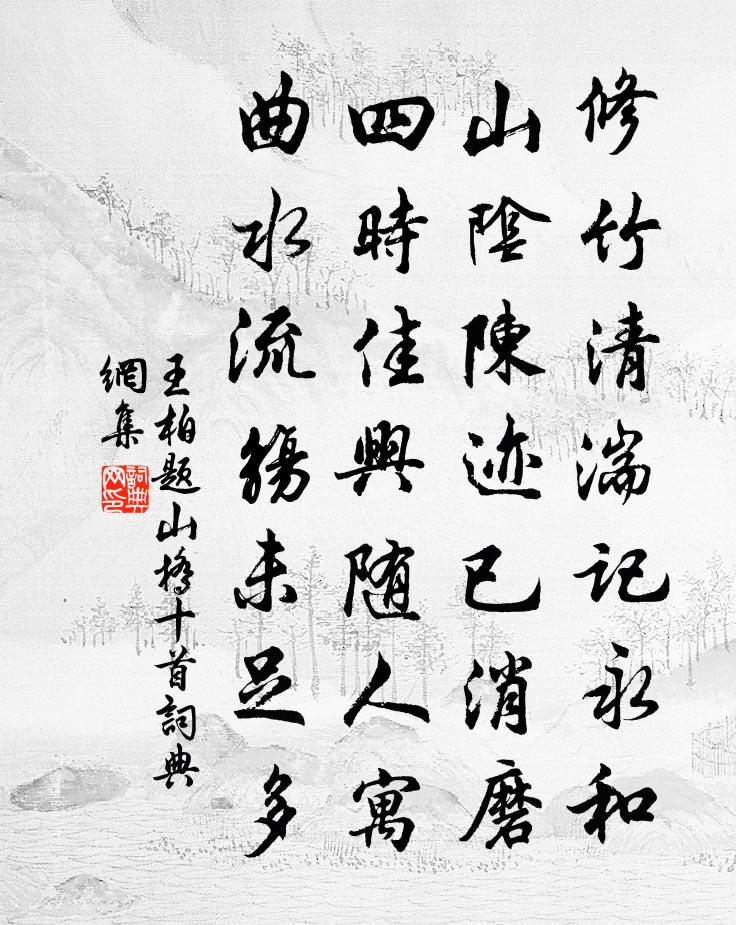 修竹清湍記永和
山陰陳迹已消磨
四時佳興随人寓
曲水流觴未足多
王柏题山橋十首詞典
網集
詞典
网印